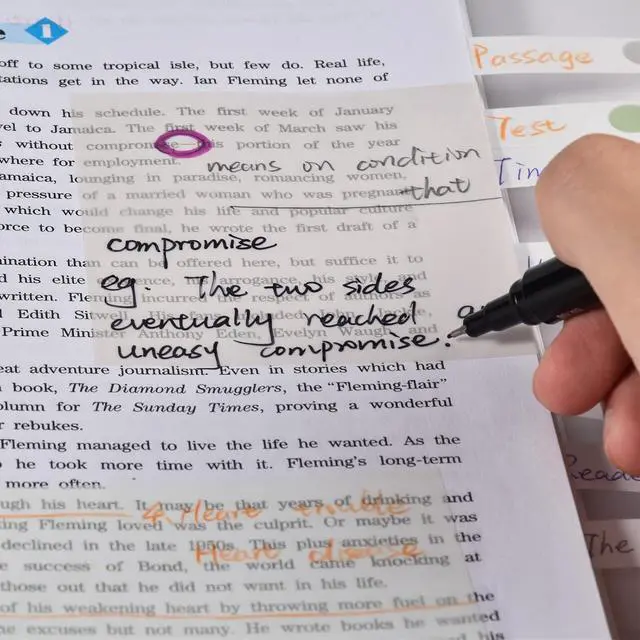 1
off to some tropical isle, but few do. Real life,
tations get in the way. Ian Fleming let none of
down his schedule. The first week of January
vel to Jamaica. The first week of March saw his
without compromise—this portion of the year
where for employment.
means on condition
that
amaica, lounging in paradise, romancing women,
pressure of a married woman who was pregnant
which would change his life and popular culture
orce to become final, he wrote the first draft of a
compromise
eg. The two sides
eventually reached an
uneasy compromise.
mination than can be offered here, but suffice it to
d his elite
arrogance, his style and
written. Fleming incurred the respect of authors as
d Edith Sitwell. His fans included
Prime Minister Anthony Eden, Evelyn Waugh and
eat adventure journalism. Even in stories which had
book, The Diamond Smugglers, the “Fleming-flair”
olumn for The Sunday Times, proving a wonderful
r rebukes.
Fleming managed to live the life he wanted. As the
he took more time with it. Fleming's long-term
more often.
ugh his heart. It may be that years of drinking and
Heart trouble
king Fleming loved was the culprit. Or maybe it was
declined in the late 1950s. This plus anxieties in the
Heart disease
e success of Bond, the world came knocking at
those out that he did not want in his life.
of his weakening heart by throwing more fuel on the
e excuses but not many. He wrote books he wanted
his
Passage
Test
Reade
The